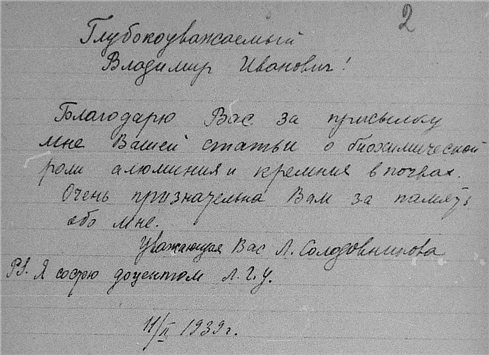 2
Глубокоуважаемый
Владимир Иванович!
Благодарю Вас за присылку
мне Вашей статьи о биохимической
роли алюминия и кремния в почвах.
Очень признательна Вам за память
обо мне.
Уважающая Вас Л. Солодовникова
P.S. Я состою доцентом Л.Г.У.
11/II 1939г.